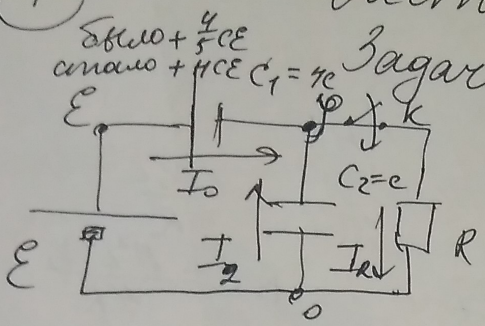 было + 4/5 CЕ
стало + 4CЕ C₁ = 4C
Задач
Ɛ
φ
K
I₀
C₂ = C
Ɛ
I₂
I_R
R
0